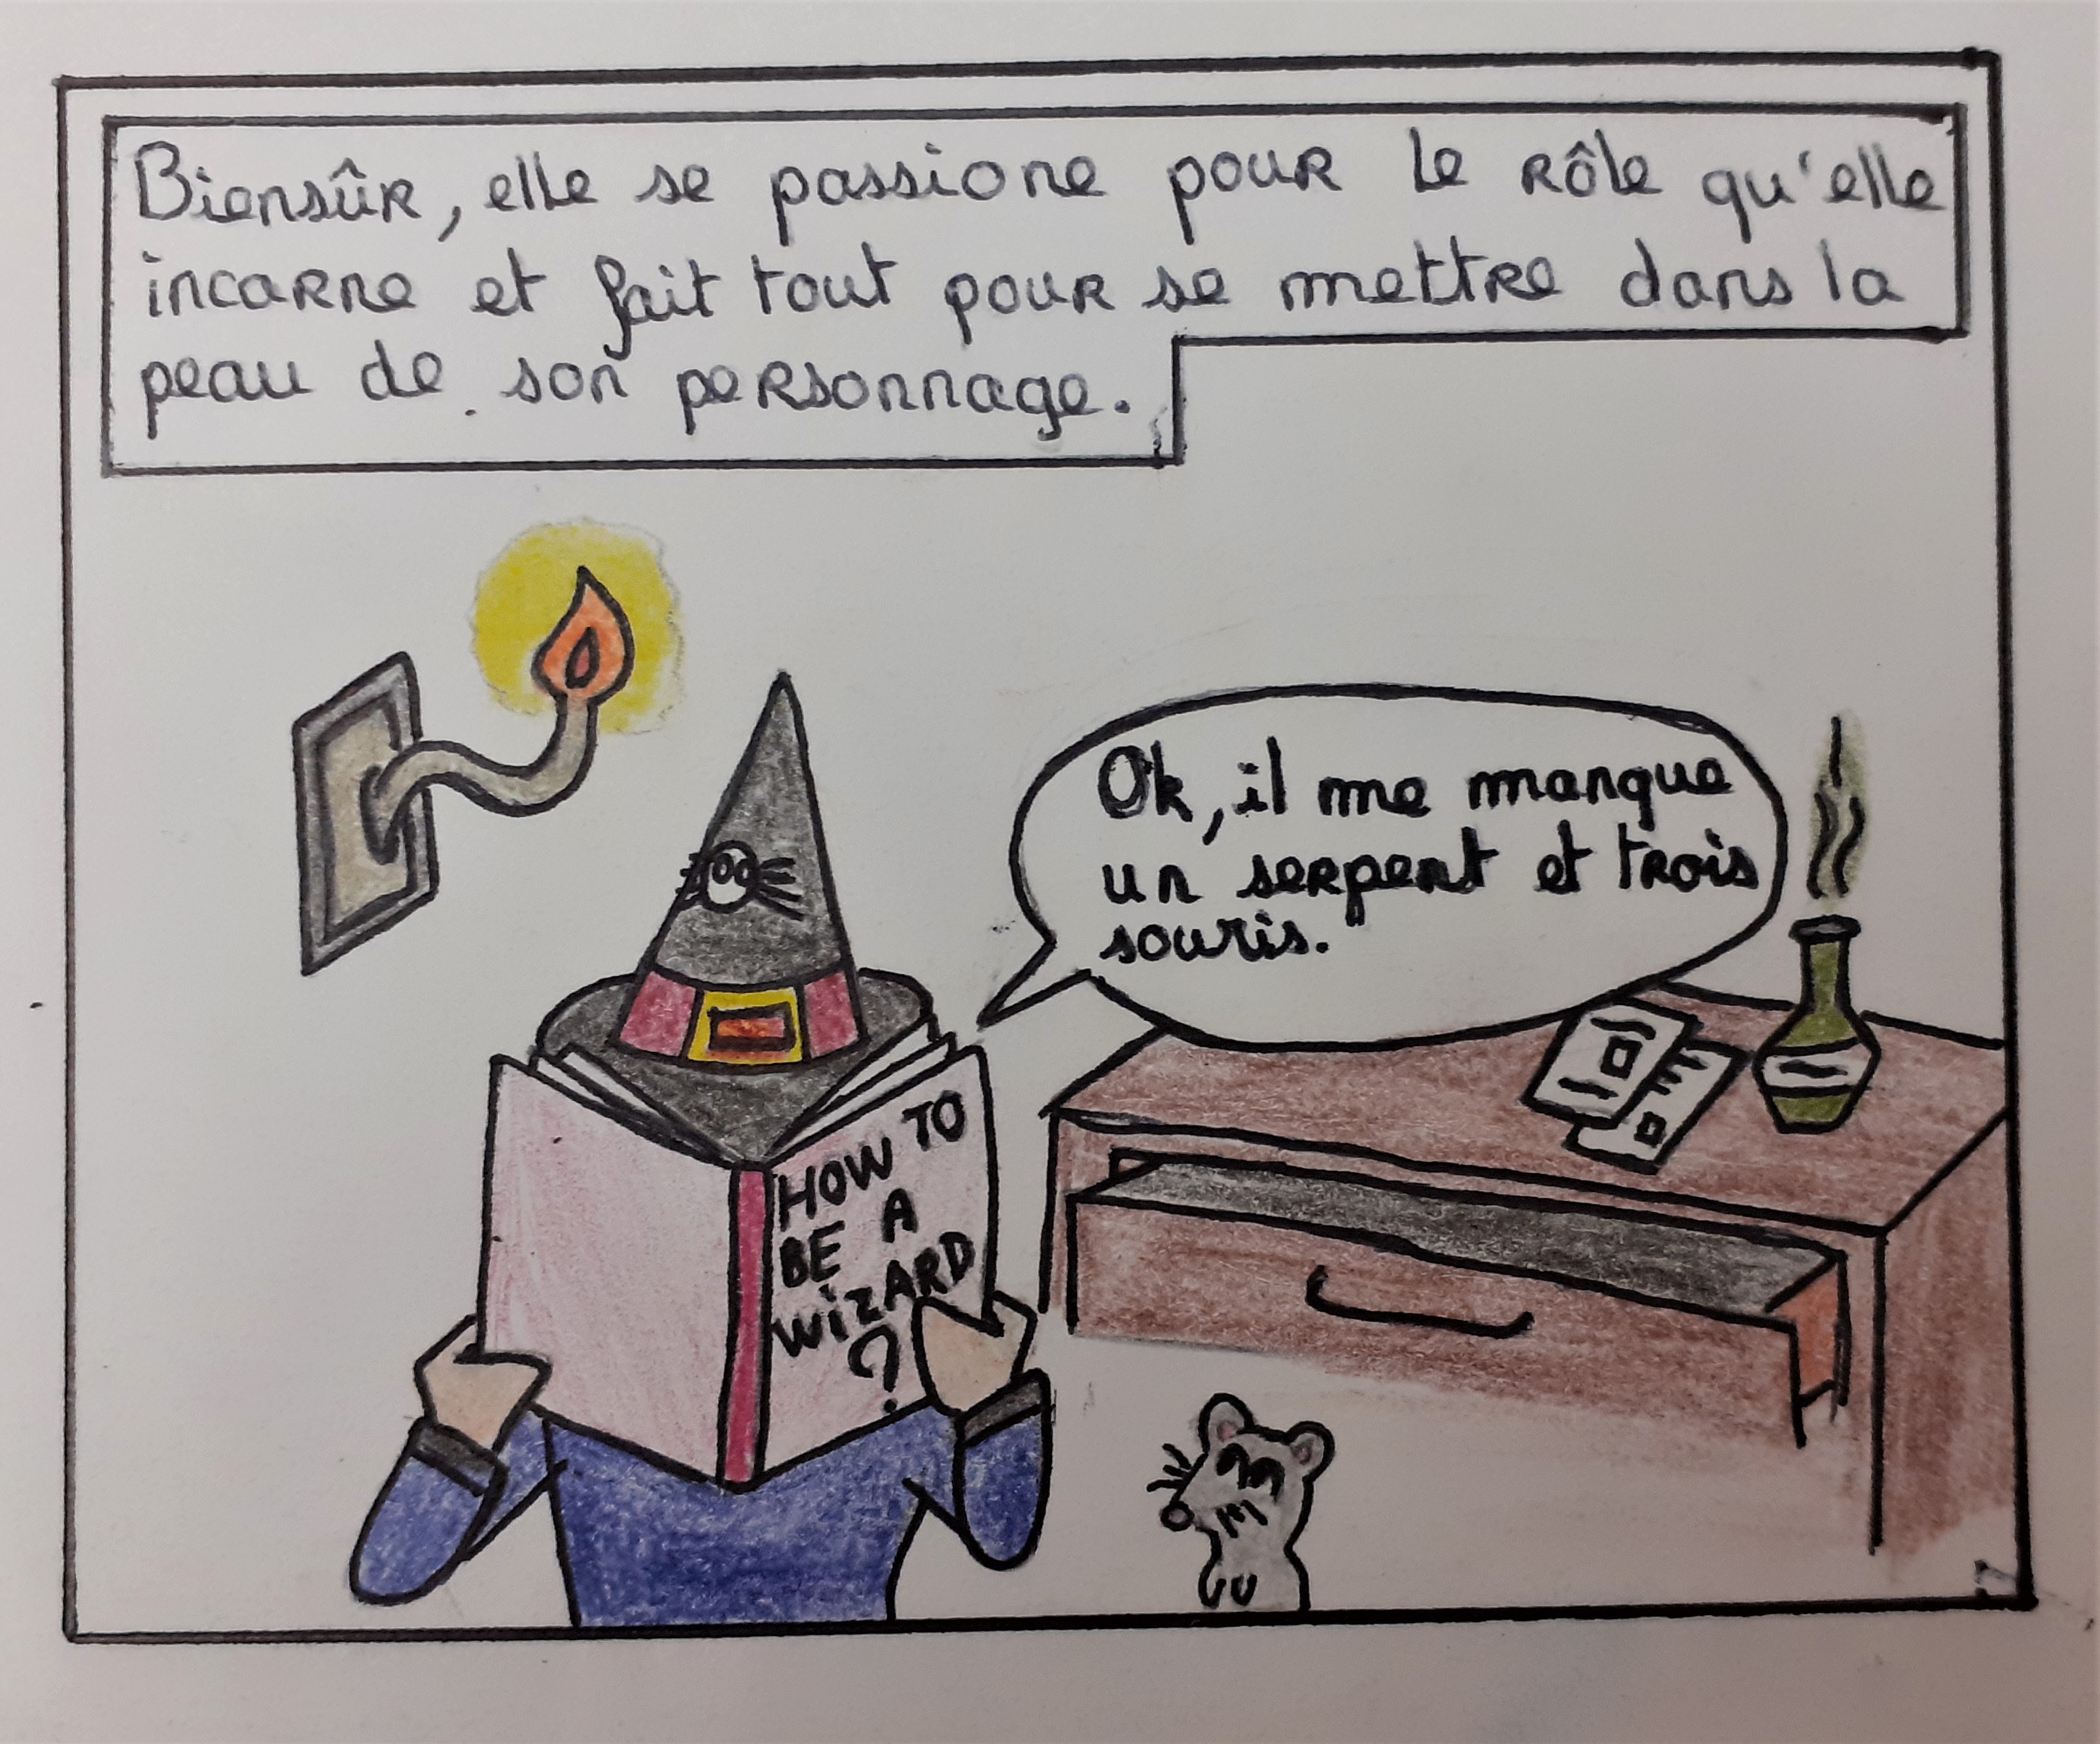 Biensûr, elle se passione pour le rôle qu'elle
incarne et fait tout pour se mettre dans la
peau de son personnage.
Ok, il me manque
un serpent et trois
souris.
HOW TO
BE A
WIZARD
?